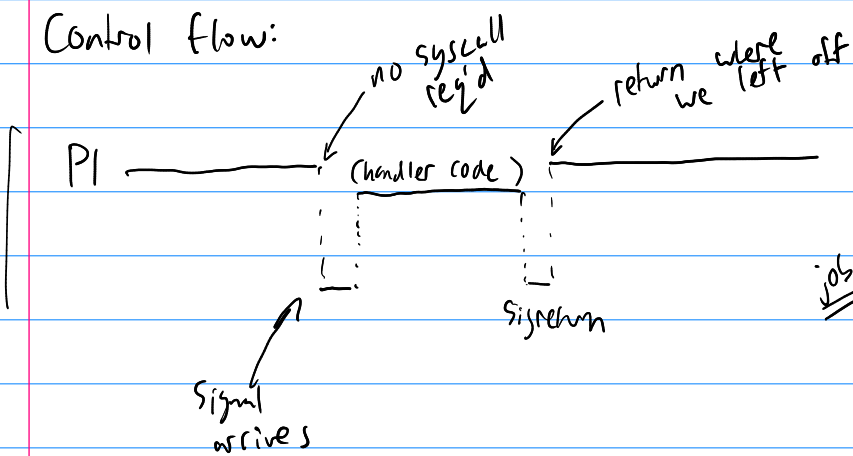 Control flow:
no syscall
req'd
return where
we left off
P1
(handler code)
job
Sigreturn
Signal
arrives